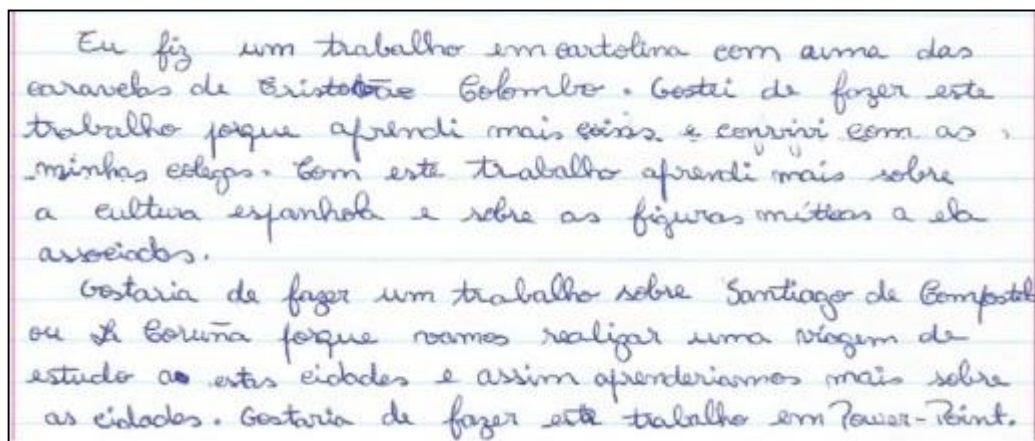 Eu fiz um trabalho em cartolina com uma das
caravelas de Cristovão Colombo. Gostei de fazer este
trabalho porque aprendi mais coisas e convivi com as
minhas colegas. Com este trabalho aprendi mais sobre
a cultura espanhola e sobre as figuras míticas a ela
associadas.
Gostaria de fazer um trabalho sobre Santiago de Compostel
ou La Coruña porque vamos realizar uma viagem de
estudo a estas cidades e assim aprenderiamos mais sobre
as cidades. Gostaria de fazer este trabalho em Power-Point.